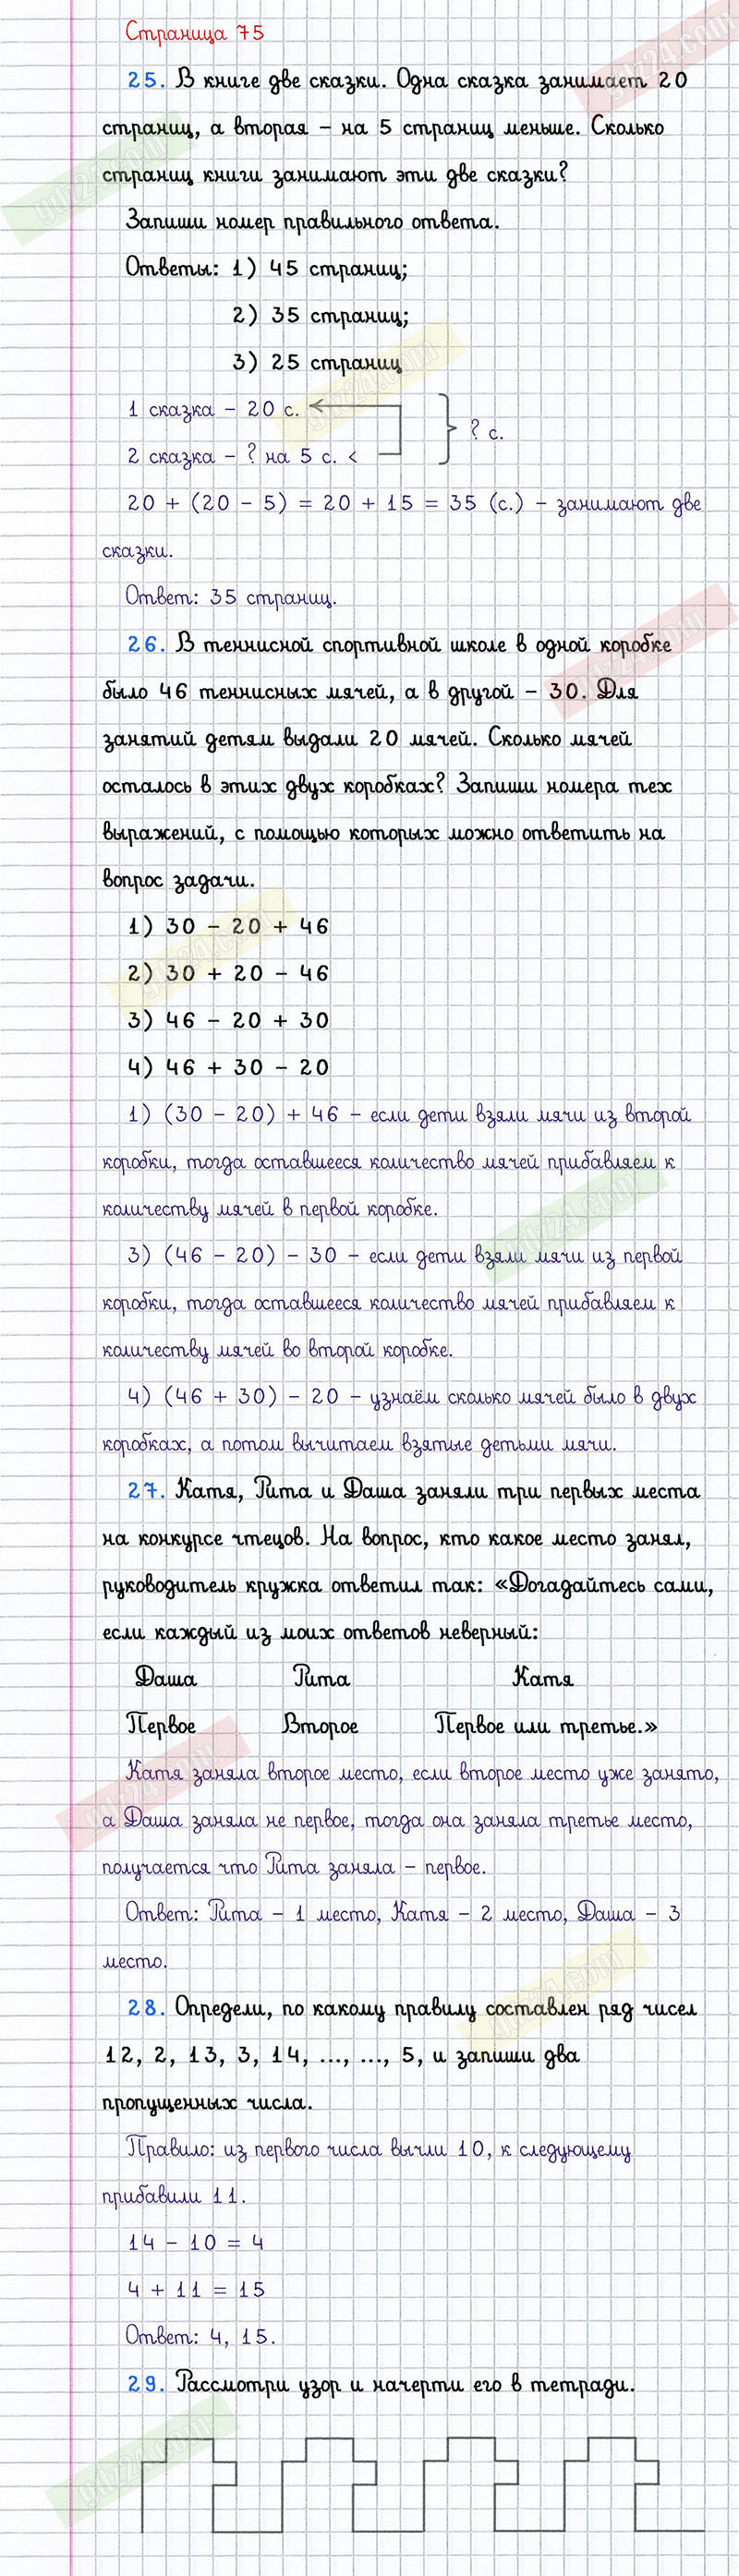 Страница 75
25. В книге две сказки. Одна сказка занимает 20
страниц, а вторая – на 5 страниц меньше. Сколько
страниц книги занимают эти две сказки?
Запиши номер правильного ответа.
Ответы: 1) 45 страниц;
2) 35 страниц;
3) 25 страниц
1 сказка – 20 с.
? с.
2 сказка – ? на 5 с. <
20 + (20 – 5) = 20 + 15 = 35 (с.) – занимают две
сказки.
Ответ: 35 страниц.
26. В теннисной спортивной школе в одной коробке
было 46 теннисных мячей, а в другой – 30. Для
занятий детям выдали 20 мячей. Сколько мячей
осталось в этих двух коробках? Запиши номера тех
выражений, с помощью которых можно ответить на
вопрос задачи.
1) 30 – 20 + 46
2) 30 + 20 – 46
3) 46 – 20 + 30
4) 46 + 30 – 20
1) (30 – 20) + 46 – если дети взяли мячи из второй
коробки, тогда оставшееся количество мячей прибавляем к
количеству мячей в первой коробке.
3) (46 – 20) – 30 – если дети взяли мячи из первой
коробки, тогда оставшееся количество мячей прибавляем к
количеству мячей во второй коробке.
4) (46 + 30) – 20 – узнаём сколько мячей было в двух
коробках, а потом вычитаем взятые детьми мячи.
27. Катя, Рита и Даша заняли три первых места
на конкурсе чтецов. На вопрос, кто какое место занял,
руководитель кружка ответил так: «Догадайтесь сами,
если каждый из моих ответов неверный:
Даша Рита Катя
Первое Второе Первое или третье.»
Катя заняла второе место, если второе место уже занято,
а Даша заняла не первое, тогда она заняла третье место,
получается что Рита заняла – первое.
Ответ: Рита – 1 место, Катя – 2 место, Даша – 3
место.
28. Определи, по какому правилу составлен ряд чисел
12, 2, 13, 3, 14, ..., ..., 5, и запиши два
пропущенных числа.
Правило: из первого числа вычли 10, к следующему
прибавили 11.
14 – 10 = 4
4 + 11 = 15
Ответ: 4, 15.
29. Рассмотри узор и начерти его в тетради.